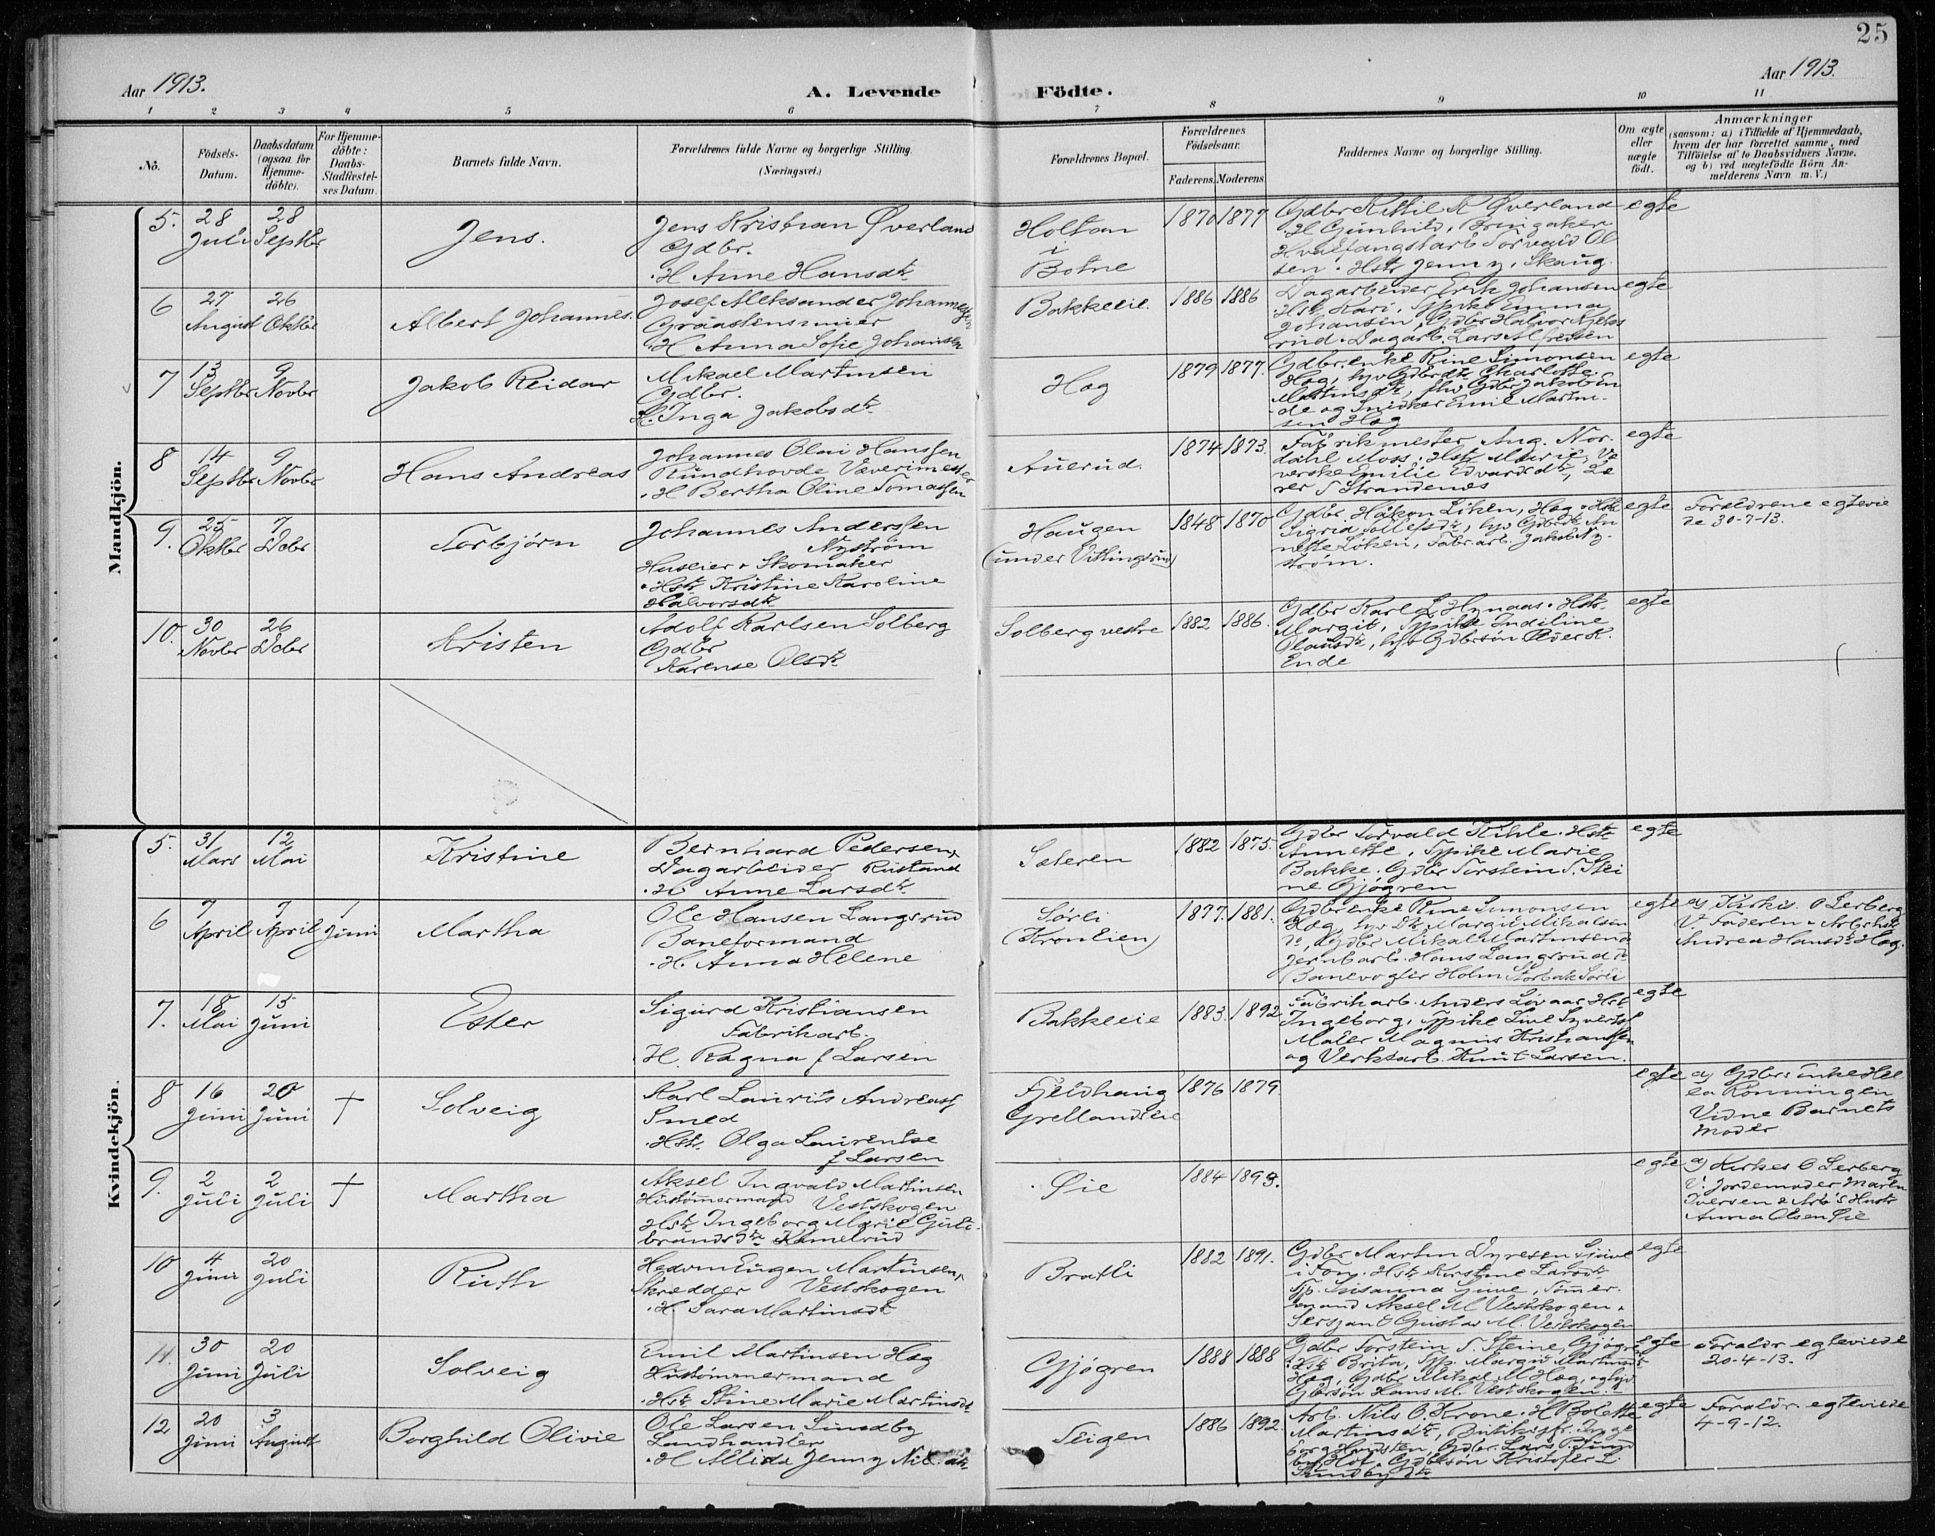 25
Aar 1913.
A. Levende
Födte.
Aar 1913.
1 2 3 4 5 6 7 8 9 10 11
No.
Födsels-
Datum.
Daabsdatum
(ogsaa for
Hjemme-
döbte).
For Hjemme-
döbte:
Daabs-
Stadfæstel-
ses Datum.
Barnets fulde Navn.
Forældrenes fulde Navne og borgerlige Stilling.
(Næringsvei.)
Forældrenes Bopæl.
Forældrenes
Födselsaar.
Faderens.
Moderens.
Faddernes Navne og borgerlige Stilling.
Om ægte
eller
uægte
født.
Anmærkninger
(saasom: a) i Tilfælde af Hjemmedaab,
hvem der har forrettet samme, med
Tilföielse af to Daabsvidners Navne,
og b) ved uægtefödte Börn An-
melderens Navn m. V.)
Mandkjön.
5. 28 Juli
28 Septbr
Jens.
Jens Kristian Øverland
Gdbr.
H Anne Hansdtr
Holtan
i
Botne
1870 1877
Gdbr Kittil K Øverland
H Gunhild, Bringaker
Hvalfangstarb Torvald Ol
sen. Hstr Jenny, Skaug.
egte
6 27 August
26 Oktbr
Albert Johannes.
Josef Aleksander Johannessen
Graastensminer
H Anna Sofie Johansen
Bakkeeie.
1886 1886
Dagarbeider Erik Johansen
Hst Kari, Tpike Emma
Johansen, Gdbr Halvor
rud. Dagarb. Lars Alfredsen
egte
7 13 Septbr
9 Novbr
Jakob Reidar
Mikael Martinsen
Gdbr.
H. Inga Jakobsdtr.
Hæg
1879 1877.
Gdbr.enke Rine Simonsen
Hæg, Charlotte
Martinsdtr, Gdbr Jakob
de og Snidker Emil Martin-
sen Hæg
egte
8 14 Septbr
9 Novbr
Hans Andreas
Johannes Olai Hanssen
Rundhovde Væverimester
H Bertha Oline Tomassen
Auerud.
1874 1873.
Fabrikmester Aug. Nor-
dahl Moss. Hstr Marie, Væ
verske Emilie Edvardsdtr, Læ
rer S Strandenæs
egte
9. 25 Oktbr
7 Debr
Torbjørn
Johannes Anderssen
Nystrøm
Huseier & Skomaker
Hstr Kristine Karoline
Halvorsdtr
Haugen
(under Vittingsrud)
1848 1870
Gdbr. Håkon Løken, Hæg. Hstr
Sigrid Tollefsdtr, An
nette Løken, Fabr.arb. Jakob Ny-
strøm.
egte
Foraldrene egtevie
de 30-7-13.
10. 30 Novbr
26 Debr
Kristen
Adolf Karlsen Solberg
Gdbr
Karense Olsdtr
Solberg vestre
1882 1886.
Gdbr Karl L Hynaas. Hstr.
Margit, Tpike Indiline
Olausdtr, Gdbrsøn Peder K.
Ende
egte
Kvindekjön.
5. 31 Mars
12 Mai
Kristine
Bernhard Pedersen
Dagarbeider Rustand
H Anne Larsdtr
Sæteren
1882 1875.
Gdbr Torvald Kihle. Hstr
Annette, Tpike Marie
Bakke. Gdbr Torstein T. Stei
ne Gjøgren
egte
6 7 April
7 April
1 Juni
Martha
Ole Hansen Langsrud
Baneformand
H. Anna Helene
Sørli
(Kronlien)
1877. 1881.
Gdbr enke Rine Simonsen
Hæg, Margit Mikalsen
dtr, Gdbr Mikal Martinsen
Jernbarb. Hans Langsrud &
Banevogter Holm Sørli
egte
a) Kirkes. O Lerberg
V. Faderen & Arb.hstr
Andrea Hansdtr Hæg.
7. 18 Mai
15 Juni
Ester
Sigurd Kristiansen
Fabrikarb.
H. Ragna f Larsen
Bakkeeie
1883. 1892
Fabrikarb. Anders Lovaas Hst
Ingeborg, Tpike Live Syverts
Maler Magnus Kristianssen
og Verkstarb Knut Larsen.
egte
8 16 Juni
20 Juni
†
Solveig
Karl Laurits Andreass
Smed
Hstr Olga Laurentse
f Larsen
Fjeldhaug
Grellandseie
1876 1879.
egte
a) Gdbr: Enke Hel
ea Rønningen
Vidne Barnets
Moder
9. 2 Juli
2 Juli
†
Martha
Aksel Ingvald Martinsen
Hustømmermand Vestskogen
Hstr Ingeborg Marie Gul-
brandsdtr Kamelrud
Øie
1884 1893.
egte
a) Kirkes O Lerberg
V. Jordemoder Maren
Iversen & Arb's Hustr
Anna Olsen Øie
10 4 Juni
20 Juli
Ruth
Hedvin Eugen Martinsen
Skrædder Vestskogen
H. Sara Martinsdtr
Bratli
1882 1891.
Gdbr Martin Dyresen Gjuve
i Fon. Hstr Kirstine Larsdtr
Tp. Susanna Gjuve, Tømer-
mand Aksel M Vestskogen &
Sersjan Gustav M. Vestskogen
egte
11. 30 Juni
20 Juli
Solveig
Emil Martinsen Hæg
Hustømmermand
Hstr Stine Marie Martinsdtr
Gjøgren
1888 1888
Gdbr Torstein T. Steine, Gjøgre
Hstr Brita, Tpp. Margit Martinsdtr
Hæg, Gdbr Mikal M Hæg,
Gbrsøn Hans M. Vestskogen
egte
Foraldr egteviede
20-4-13.
12 20 Juni
3 August
Borghild Olivie
Ole Larsen Sundby
Landhandler
H Allida Jenny Nilsdtr
Teigen
1886 1892.
Arb. Nils O. Krone. H Bolette
Martinsdtr, Butikjfr. Inge
borg Hvidsten, Gdbr Lars P. Sund
by Hof, Gdbrsøn Kristofer L.
Sundby
egte
Foraldr. egteviede
4-9-12.